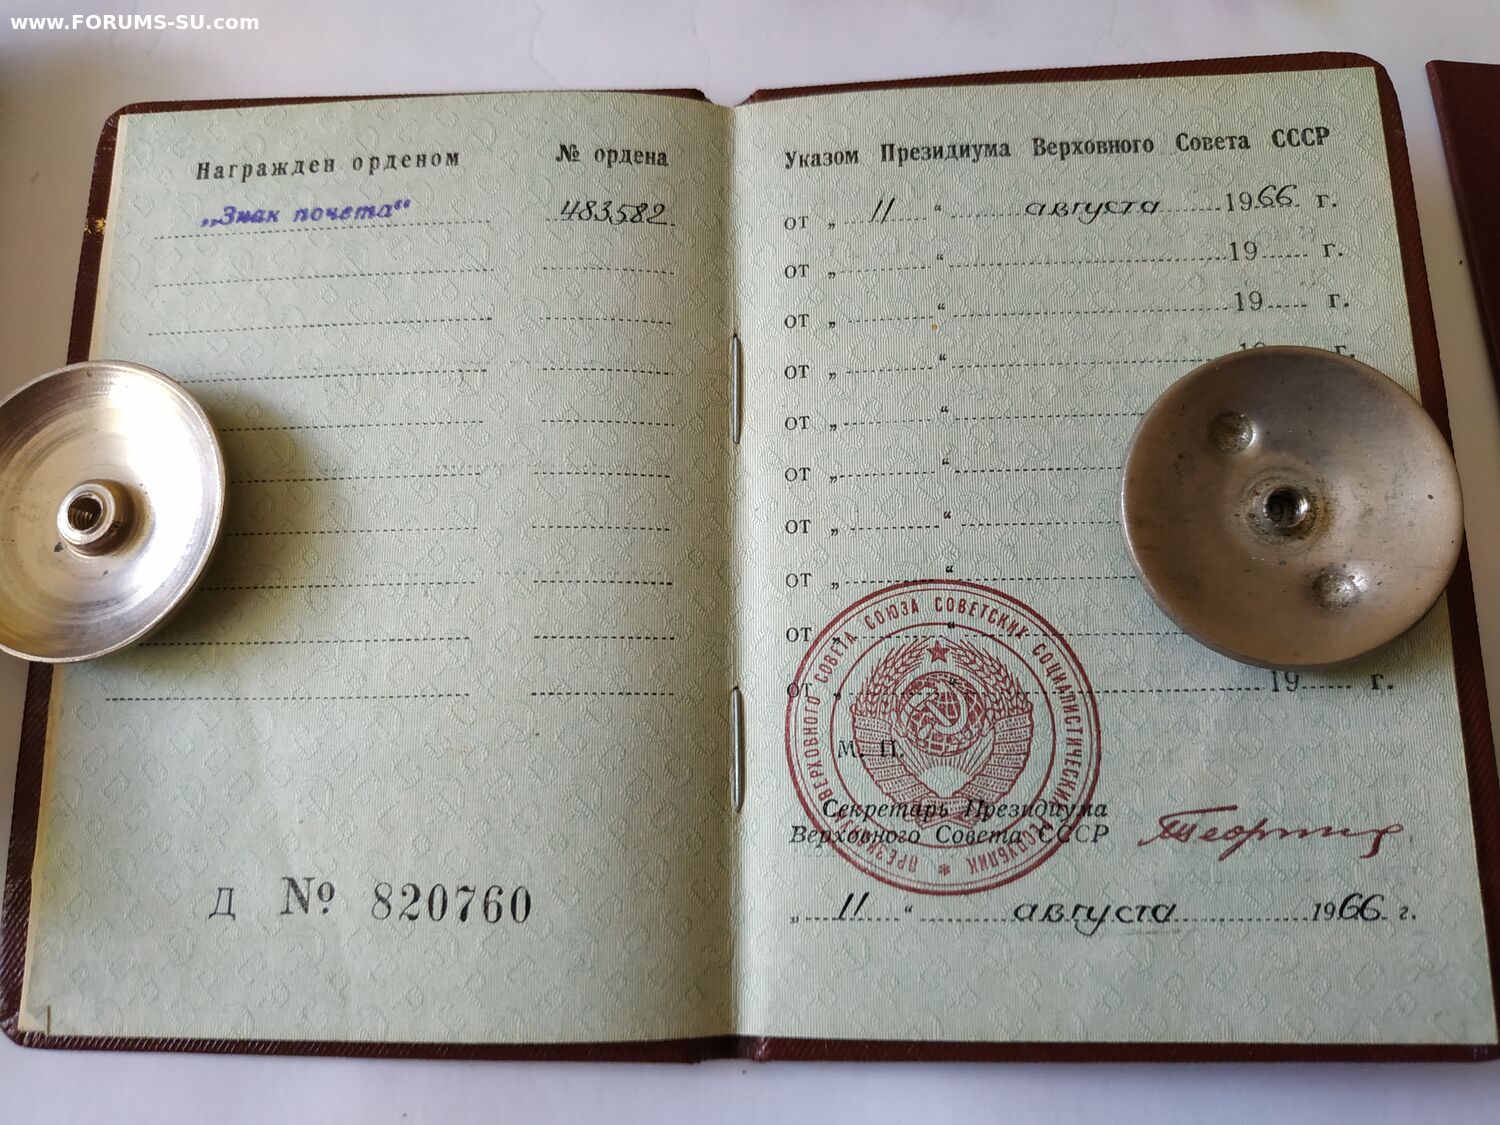 www.FORUMS-SU.com
Награжден орденом № ордена
„Знак почета“ 483582
Д № 820760
Указом Президиума Верховного Совета СССР
от „ 11 “ августа 1966 г.
от „ “ 19 г.
от „ “ 19 г.
от „ “ 19 г.
от „ “
от „ “
от „ “
от „ “
от „ “
от „ “ 19 г.
ПРЕЗИДИУМ ВЕРХОВНОГО СОВЕТА СОЮЗА СОВЕТСКИХ СОЦИАЛИСТИЧЕСКИХ РЕСПУБЛИК
М. П.
Секретарь Президиума
Верховного Совета СССР
„ 11 “ августа 1966 г.